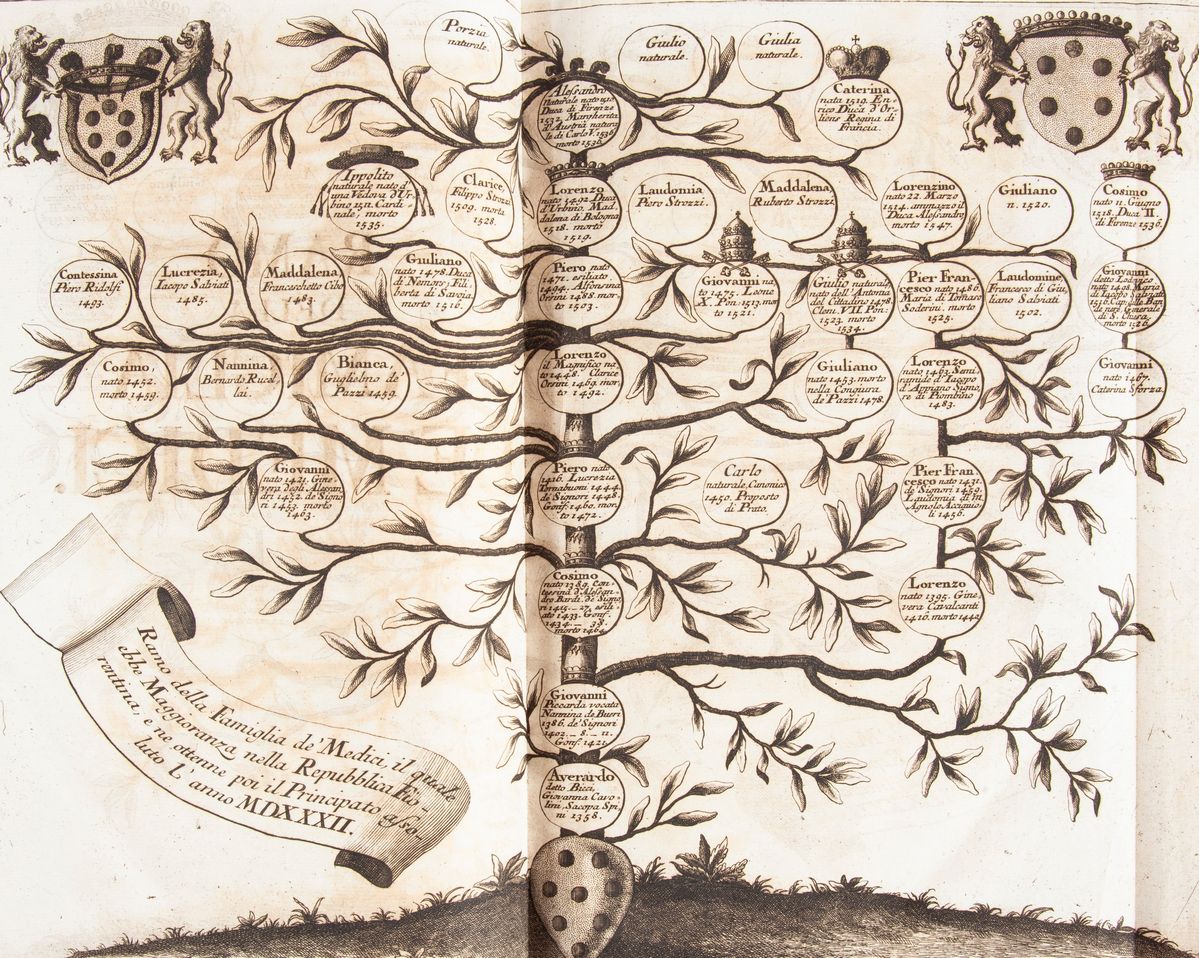 Porzia
naturale.
Giulio
naturale.
Giulia
naturale.
Alessandro
naturale nato 1510.
Duca di Firenze
1532. Margherita
d'Austria natura-
le di Carlo V. 1536.
morto 1536.
Caterina
nata 1519. En-
rico Duca d'Or-
liens Regina di
Francia.
Ippolito
naturale nato d'
una Vedova d'Ur-
bino 1511. Cardi-
nale, morto
1535.
Clarice,
Filippo Strozzi
1509. morta
1528.
Lorenzo
nato 1492. Duca
d'Urbino, Mad-
dalena di Bologna
1518. morto
1519.
Laudomia
Piero Strozzi.
Maddalena
Ruberto Strozzi.
Lorenzino
nato 22. Marzo
1514. ammazzò il
Duca Alessandro,
morto 1547.
Giuliano
n. 1520.
Cosimo
nato 11. Giugno
1518. Duca II.
di Firenze 1536.
Contessina
Piero Ridolfi
1493.
Lucrezia,
Iacopo Salviati
1485.
Maddalena
Franceschetto Cibo
1483.
Giuliano
nato 1478. Duca
di Nemors, Fili-
berta di Savoia
morto 1516.
Piero nato
1471. esiliato
1494. Alfonsina
Orsini 1488. mor-
to 1503.
Giovanni na
to 1475. Leone
X. Pon: 1513. mor-
to 1521.
Giulio naturale,
nato dell'Antonia
del Cittadino 1478.
Clem. VII. Pon:
1523. morto
1534.
Pier Fran-
cesco nato 1486.
Maria di Tomaso
Soderini. morto
1525.
Laudomine,
Francesco di Giu
liano Salviati.
1502.
Giovanni
detto Lodovico
nato 1498. Maria
di Iacopo Salviati
1516. Cap. di Ban
de nere, Generale
di S. Chiesa,
morto 1526.
Cosimo,
nato 1452.
morto 1459.
Nannina,
Bernardo Rucel-
lai.
Bianca,
Guglielmo de'
Pazzi 1459.
Lorenzo
il Magnifico na
to 1448. Clarice
Orsini 1469. mor-
to 1492.
Giuliano
nato 1453. morto
nella Congiura
de' Pazzi 1478.
Lorenzo
nato 1463. Semi
ramide d'Iacopo
d'Appiano Signo
re di Piombino
1483.
Giovanni
nato 1467.
Caterina Sforza.
Giovanni
nato 1421. Gine-
vera degli Alessan
dri 1452. de' Signo
ri 1453. morto
1463.
Piero nato
1416. Lucrezia
Tornabuoni 1444.
de' Signori 1448.
Gonf. 1460. mor-
to 1472.
Carlo
naturale, Canonico
1450. Proposto
di Prato.
Pier Fran
cesco nato 1431.
de' Signori 1459.
Laudomia di
Agnolo Acciaiuo-
li 1456.
Cosimo
nato 1389. Con-
tessina d'Alessan-
dro Bardi. de' Signo
ri 1415. _ 27. esili-
ato 1433. Gonf.
1434. _ 38.
morto 1464.
Lorenzo
nato 1395. Gine
vera Cavalcanti
1416. morto 1440.
Giovanni
Piccarda vocata
Nannina de Bueri
1386. de' Signori
1402. _ 8. _ 11.
Gonf. 1421.
Averardo
detto Bicci,
Giovanna Cavo-
lini, Jacopa Spi
ni 1358.
Ramo della Famiglia de' Medici, il quale
ebbe Maggioranza nella Repubblica Fio-
rentina, e ne ottenne poi il Principato asso-
luto L'anno MDXXXII.